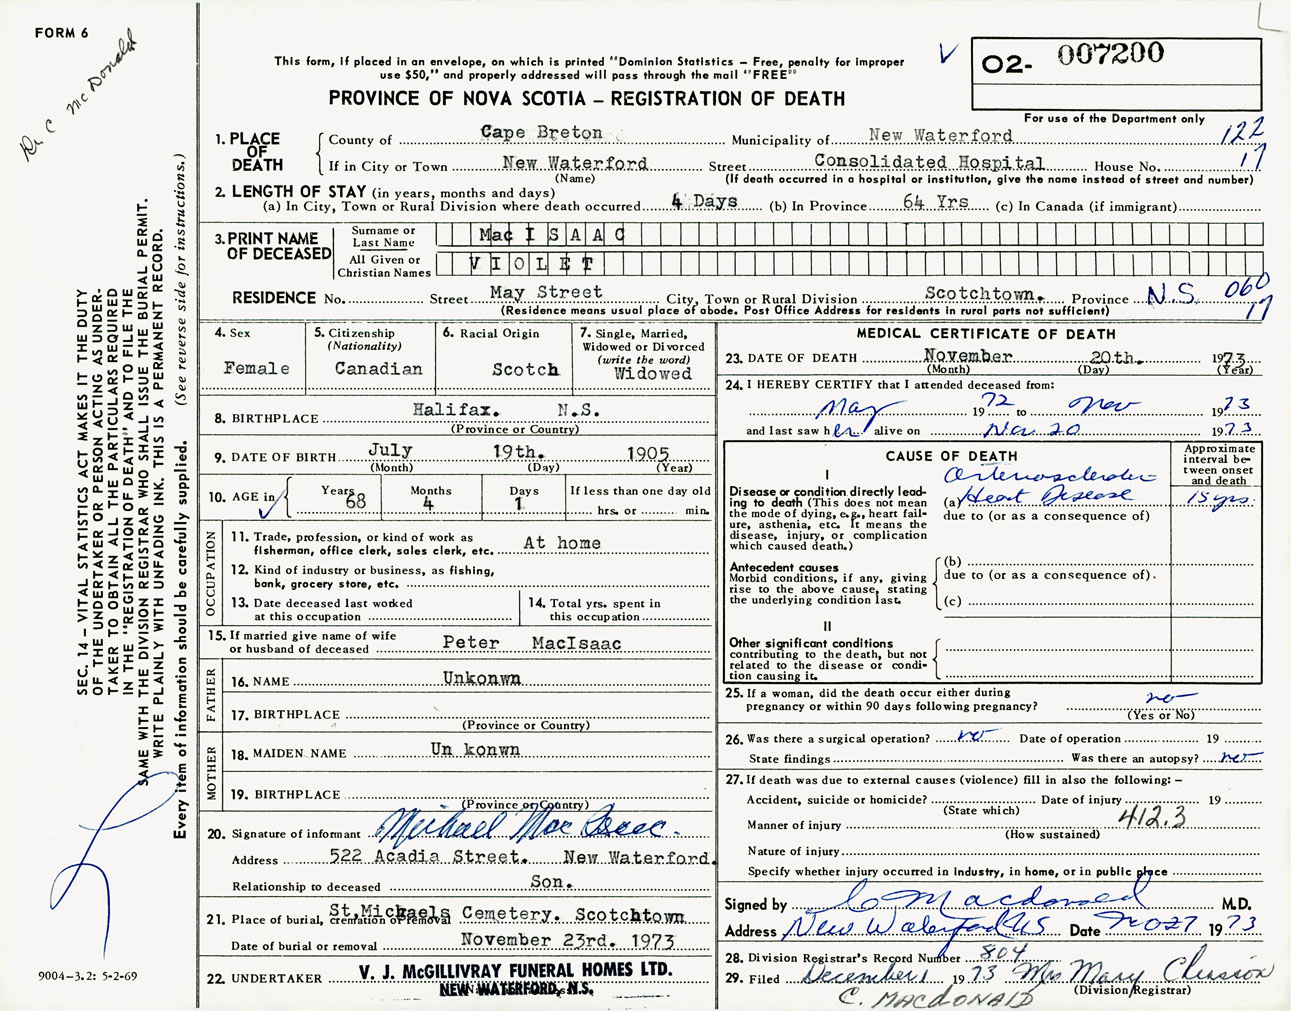 FORM 6
Dr. C McDonald
This form, if placed in an envelope, on which is printed "Dominion Statistics – Free, penalty for improper
use $50," and properly addressed will pass through the mail "FREE"
PROVINCE OF NOVA SCOTIA – REGISTRATION OF DEATH
02- 007200
For use of the Department only
1. PLACE OF DEATH
County of Cape Breton Municipality of New Waterford 122
If in City or Town New Waterford Street Consolidated Hospital House No. 17
(Name) (If death occurred in a hospital or institution, give the name instead of street and number)
2. LENGTH OF STAY (in years, months and days)
(a) In City, Town or Rural Division where death occurred 4 Days (b) In Province 64 Yrs (c) In Canada (if immigrant)
3. PRINT NAME OF DECEASED
Surname or Last Name MacISAAC
All Given or Christian Names VIOLET
RESIDENCE No. Street May Street City, Town or Rural Division Scotchtown. Province N.S. 060
(Residence means usual place of abode. Post Office Address for residents in rural parts not sufficient) 17
4. Sex
Female
5. Citizenship
(Nationality)
Canadian
6. Racial Origin
Scotch
7. Single, Married,
Widowed or Divorced
(write the word)
Widowed
8. BIRTHPLACE Halifax. N.S.
(Province or Country)
9. DATE OF BIRTH July 19th. 1905
(Month) (Day) (Year)
10. AGE in Years 68 Months 4 Days 1 If less than one day old
hrs. or min.
OCCUPATION
11. Trade, profession, or kind of work as
fisherman, office clerk, sales clerk, etc. At home
12. Kind of industry or business, as fishing,
bank, grocery store, etc.
13. Date deceased last worked
at this occupation
14. Total yrs. spent in
this occupation
15. If married give name of wife
or husband of deceased Peter MacIsaac
FATHER
16. NAME Unkonwn
17. BIRTHPLACE
(Province or Country)
MOTHER
18. MAIDEN NAME Un konwn
19. BIRTHPLACE
(Province or Country)
20. Signature of informant Michael Mac Isaac.
Address 522 Acadia Street. New Waterford.
Relationship to deceased Son.
21. Place of burial, cremation or removal St,Michaels Cemetery. Scotchtown
Date of burial or removal November 23rd. 1973
22. UNDERTAKER V. J. McGILLIVRAY FUNERAL HOMES LTD.
NEW WATERFORD, N.S.
MEDICAL CERTIFICATE OF DEATH
23. DATE OF DEATH November 20th. 1973
(Month) (Day) (Year)
24. I HEREBY CERTIFY that I attended deceased from:
May 1972 to Nov 1973
and last saw her alive on Nov 20 1973
CAUSE OF DEATH
Approximate interval between onset and death
I
Disease or condition directly lead-
ing to death (This does not mean
the mode of dying, e.g., heart fail-
ure, asthenia, etc. It means the
disease, injury, or complication
which caused death.)
Arteriosclerotic
(a) Heart Disease 15 yrs.
due to (or as a consequence of)
Antecedent causes
Morbid conditions, if any, giving
rise to the above cause, stating
the underlying condition last.
(b)
due to (or as a consequence of)
(c)
II
Other significant conditions
contributing to the death, but not
related to the disease or condi-
tion causing it.
25. If a woman, did the death occur either during
pregnancy or within 90 days following pregnancy? no
(Yes or No)
26. Was there a surgical operation? no Date of operation 19
State findings Was there an autopsy? no
27. If death was due to external causes (violence) fill in also the following: –
Accident, suicide or homicide? Date of injury 19
(State which)
Manner of injury 412.3
(How sustained)
Nature of injury
Specify whether injury occurred in industry, in home, or in public place
Signed by C Macdonald M.D.
Address New Waterford NS Date Nov 27 1973
28. Division Registrar's Record Number 804
29. Filed December 1 1973 Mrs Mary
(Division Registrar)
C. MACDONALD
SEC. 14 – VITAL STATISTICS ACT MAKES IT THE DUTY
OF THE UNDERTAKER OR PERSON ACTING AS UNDER-
TAKER TO OBTAIN ALL THE PARTICULARS REQUIRED
IN THE "REGISTRATION OF DEATH" AND TO FILE THE
SAME WITH THE DIVISION REGISTRAR WHO SHALL ISSUE THE BURIAL PERMIT.
WRITE PLAINLY WITH UNFADING INK. THIS IS A PERMANENT RECORD.
Every item of information should be carefully supplied. (See reverse side for instructions.)
9004-3.2: 5-2-69